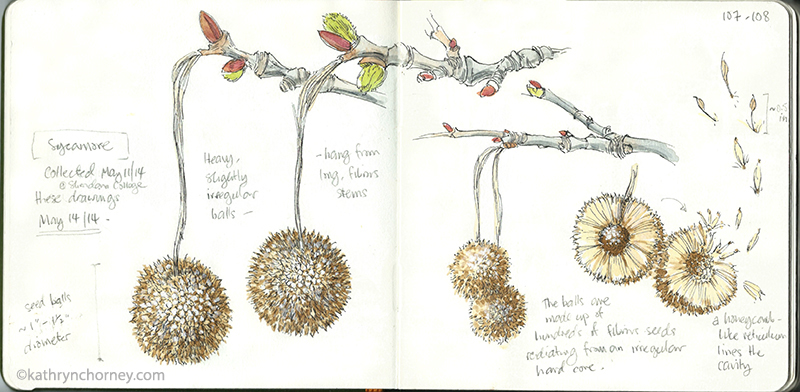 107-108
Sycamore
Collected May 11/14
@ Sheridan College
these drawings
May 14/14 -
Heavy,
slightly
irregular
balls -
- hang from
long, fibrous
stems
seed balls
~ 1" - 1½"
diameter
The balls are
made up of
hundreds of fibrous seeds
radiating from an irregular
hard core.
a honeycomb-
like reticulum
lines the
cavity
©kathrynchorney.com